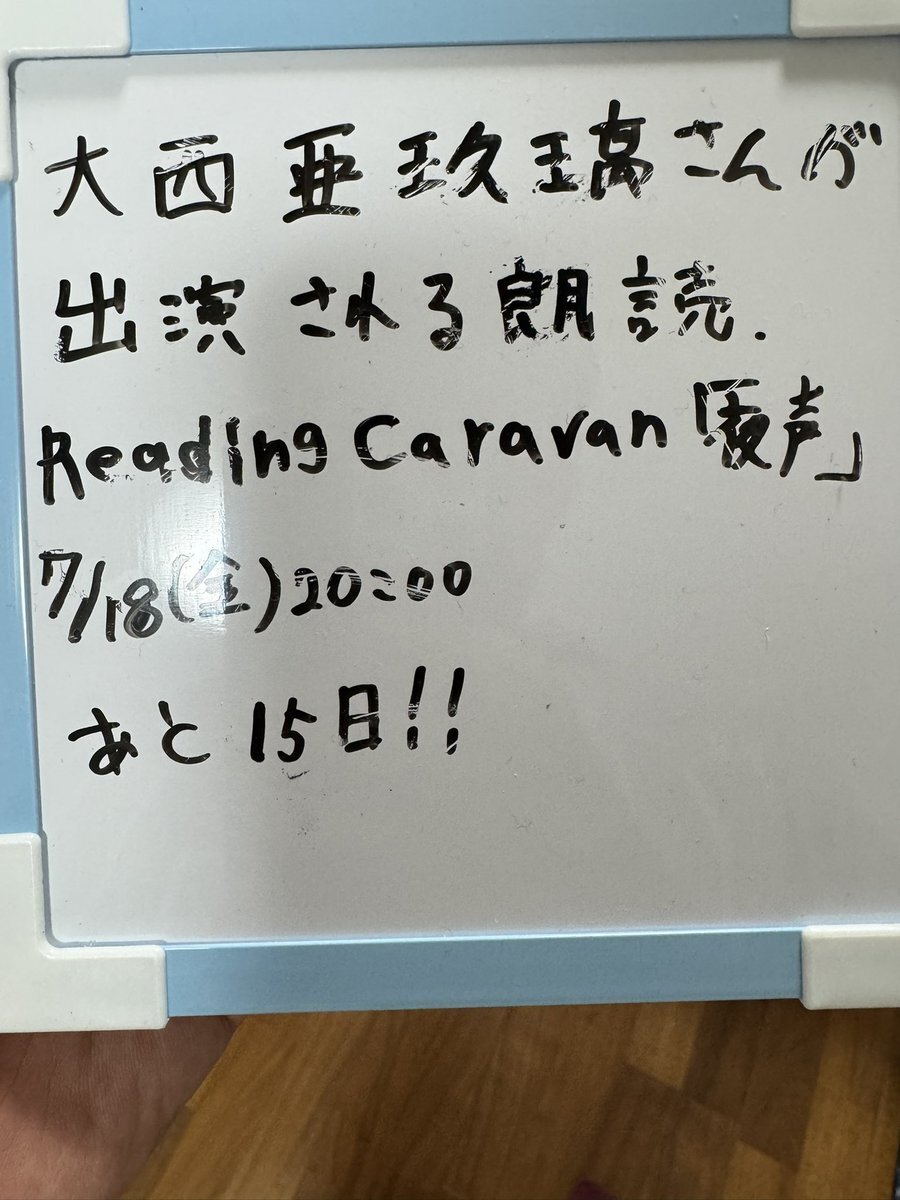 大西亜玖璃さんが
出演される朗読.
Reading Caravan「夜声」
7/18(金)20:00
あと15日!!